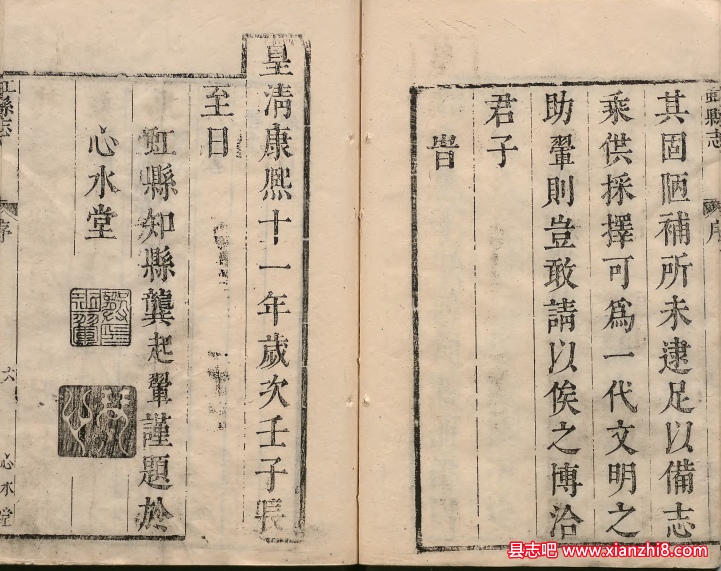 虹縣志
序
其固陋補所未逮足以備志
乘供採擇可爲一代文明之
助鞏則豈敢請以俟之博洽
君子
旹
皇淸康熙十一年歲次壬子長
至日
虹縣知縣龔起鞏謹題於
心水堂
虹縣志
序
六
心水堂
县志吧 www.xianzhi8.com